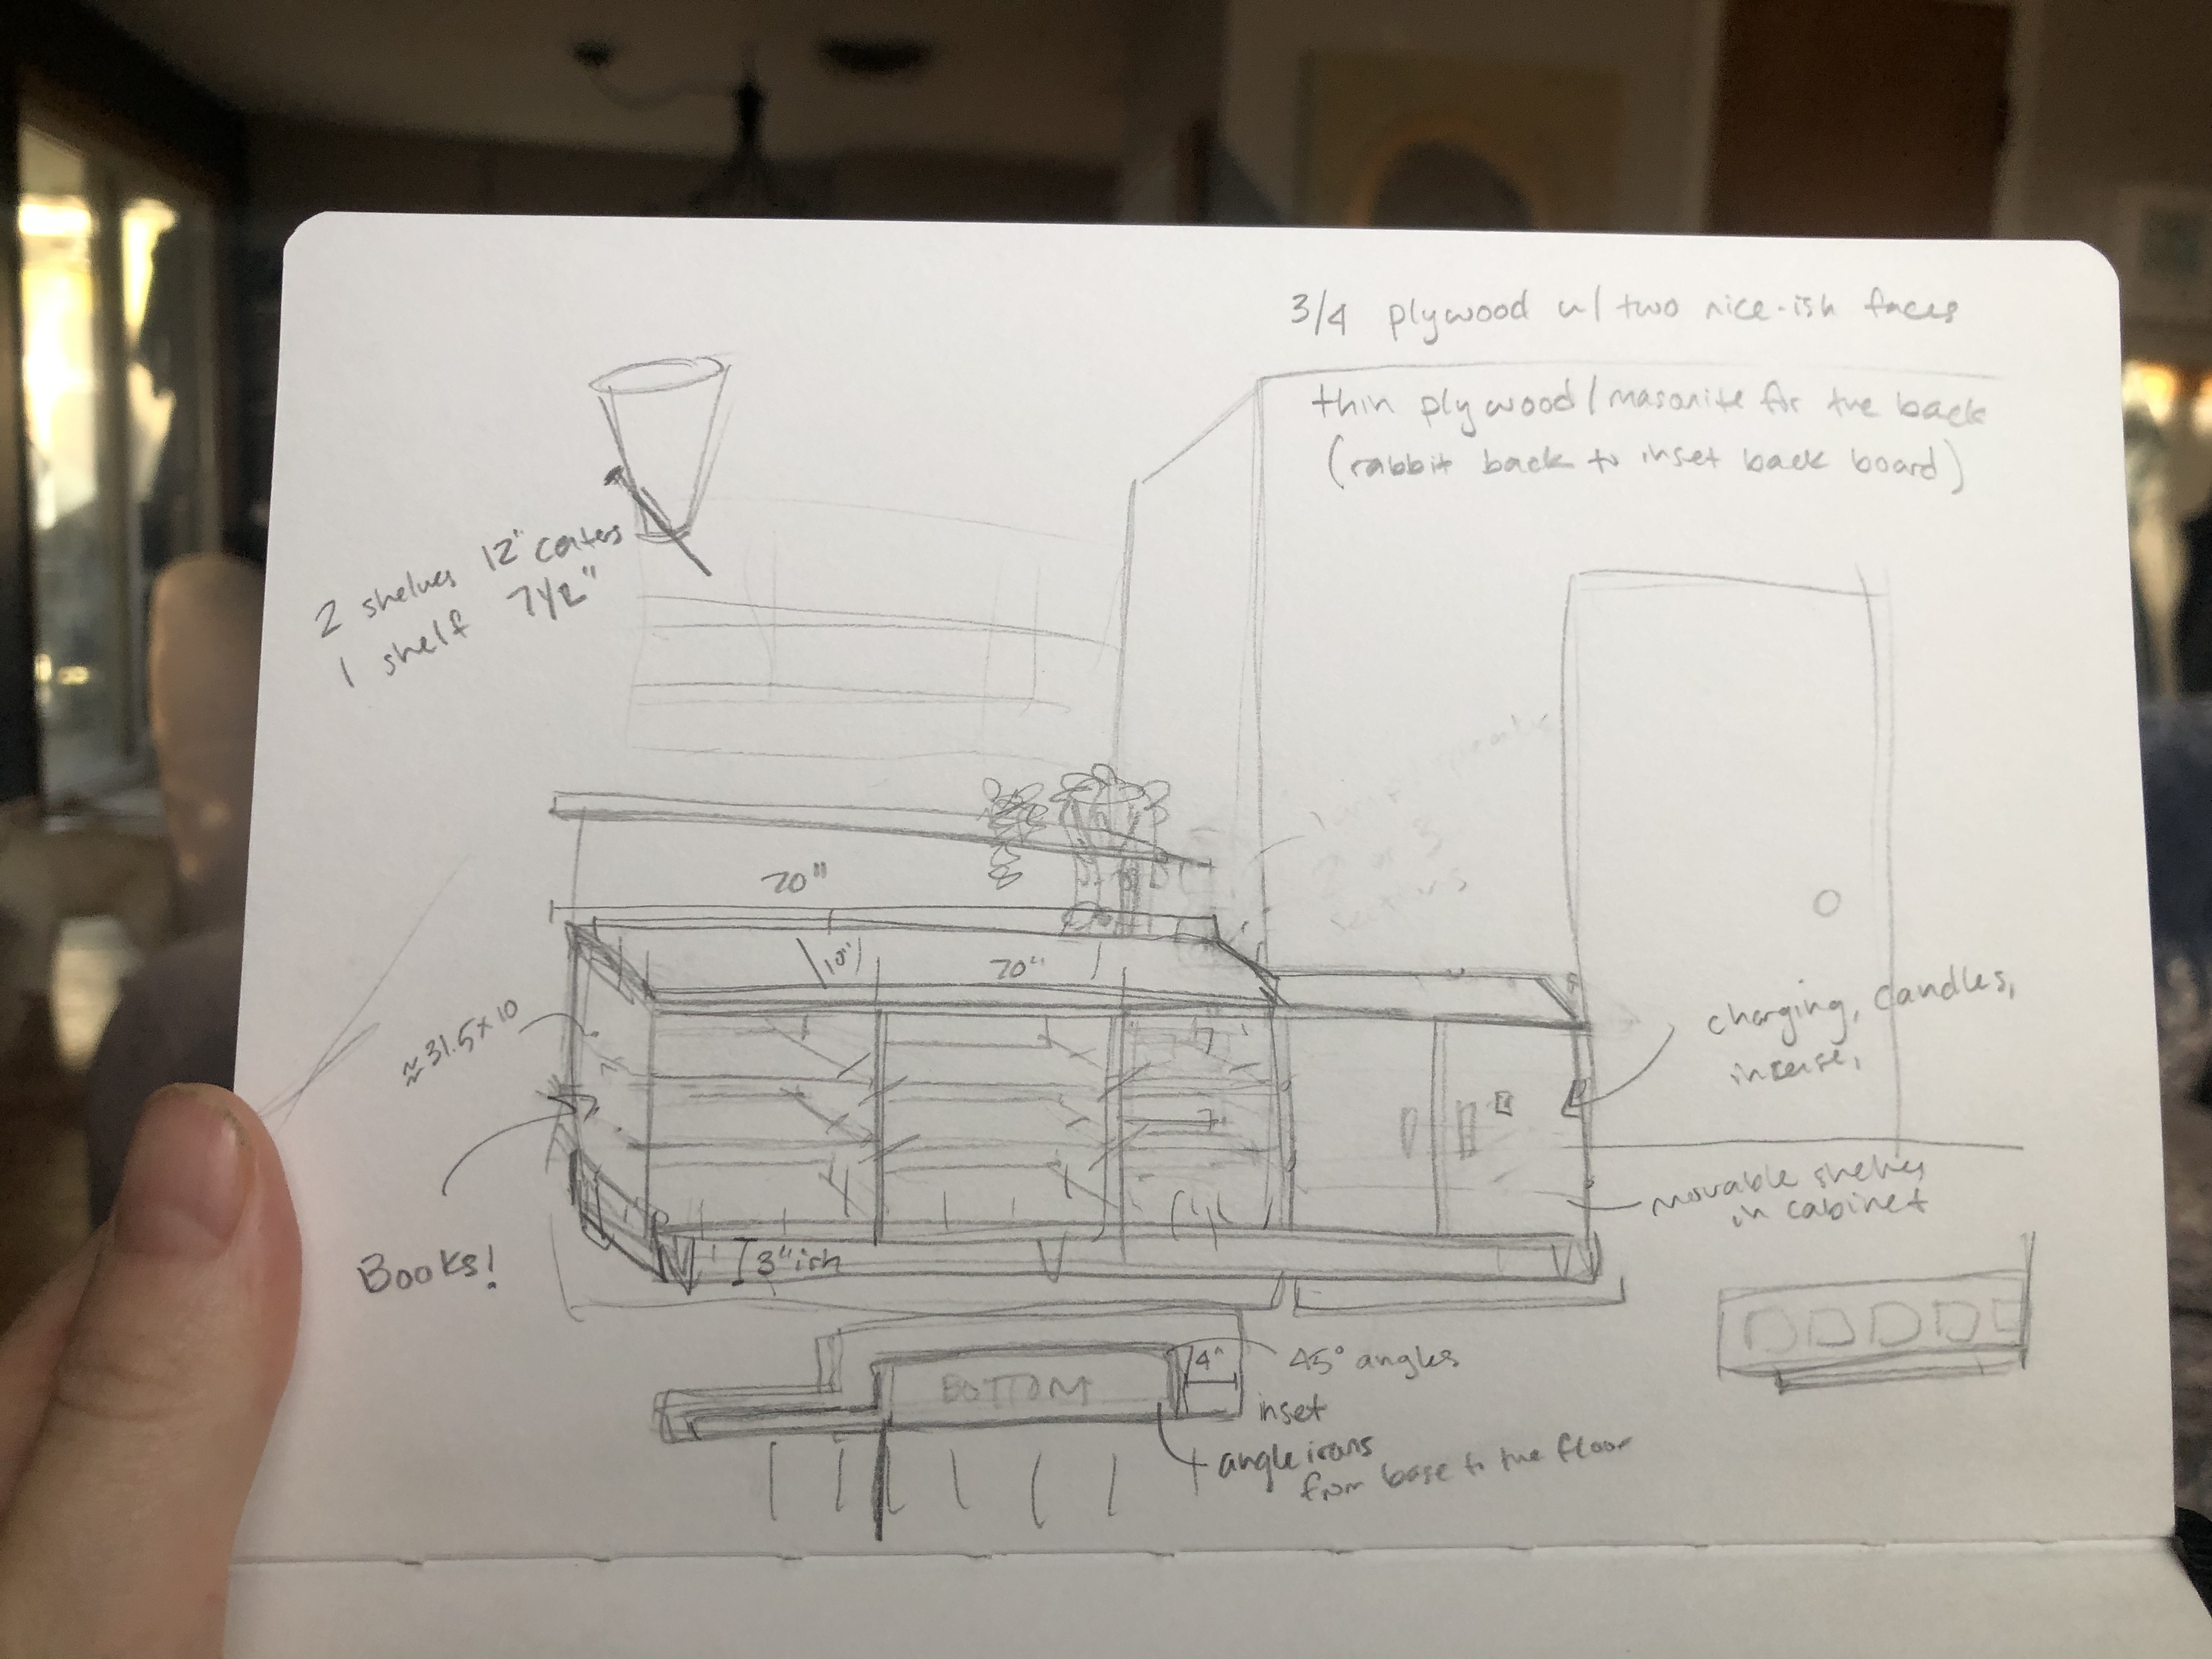 3/4 plywood w/ two nice-ish faces
thin plywood/masonite for the back
(rabbit back to inset back board)
2 shelves 12" centers
1 shelf 7 1/2"
70"
10"
70"
≈31.5x10
charging, candles,
incense,
movable shelves
in cabinet
Books!
3"ish
4"
45° angles
BOTTOM
inset
angle irons
from base to the floor